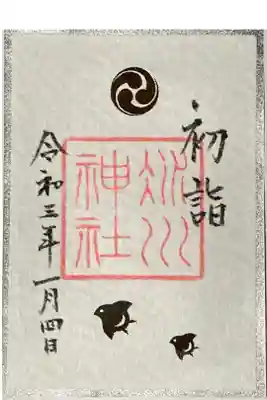 初詣
神社
令和三年一月四日